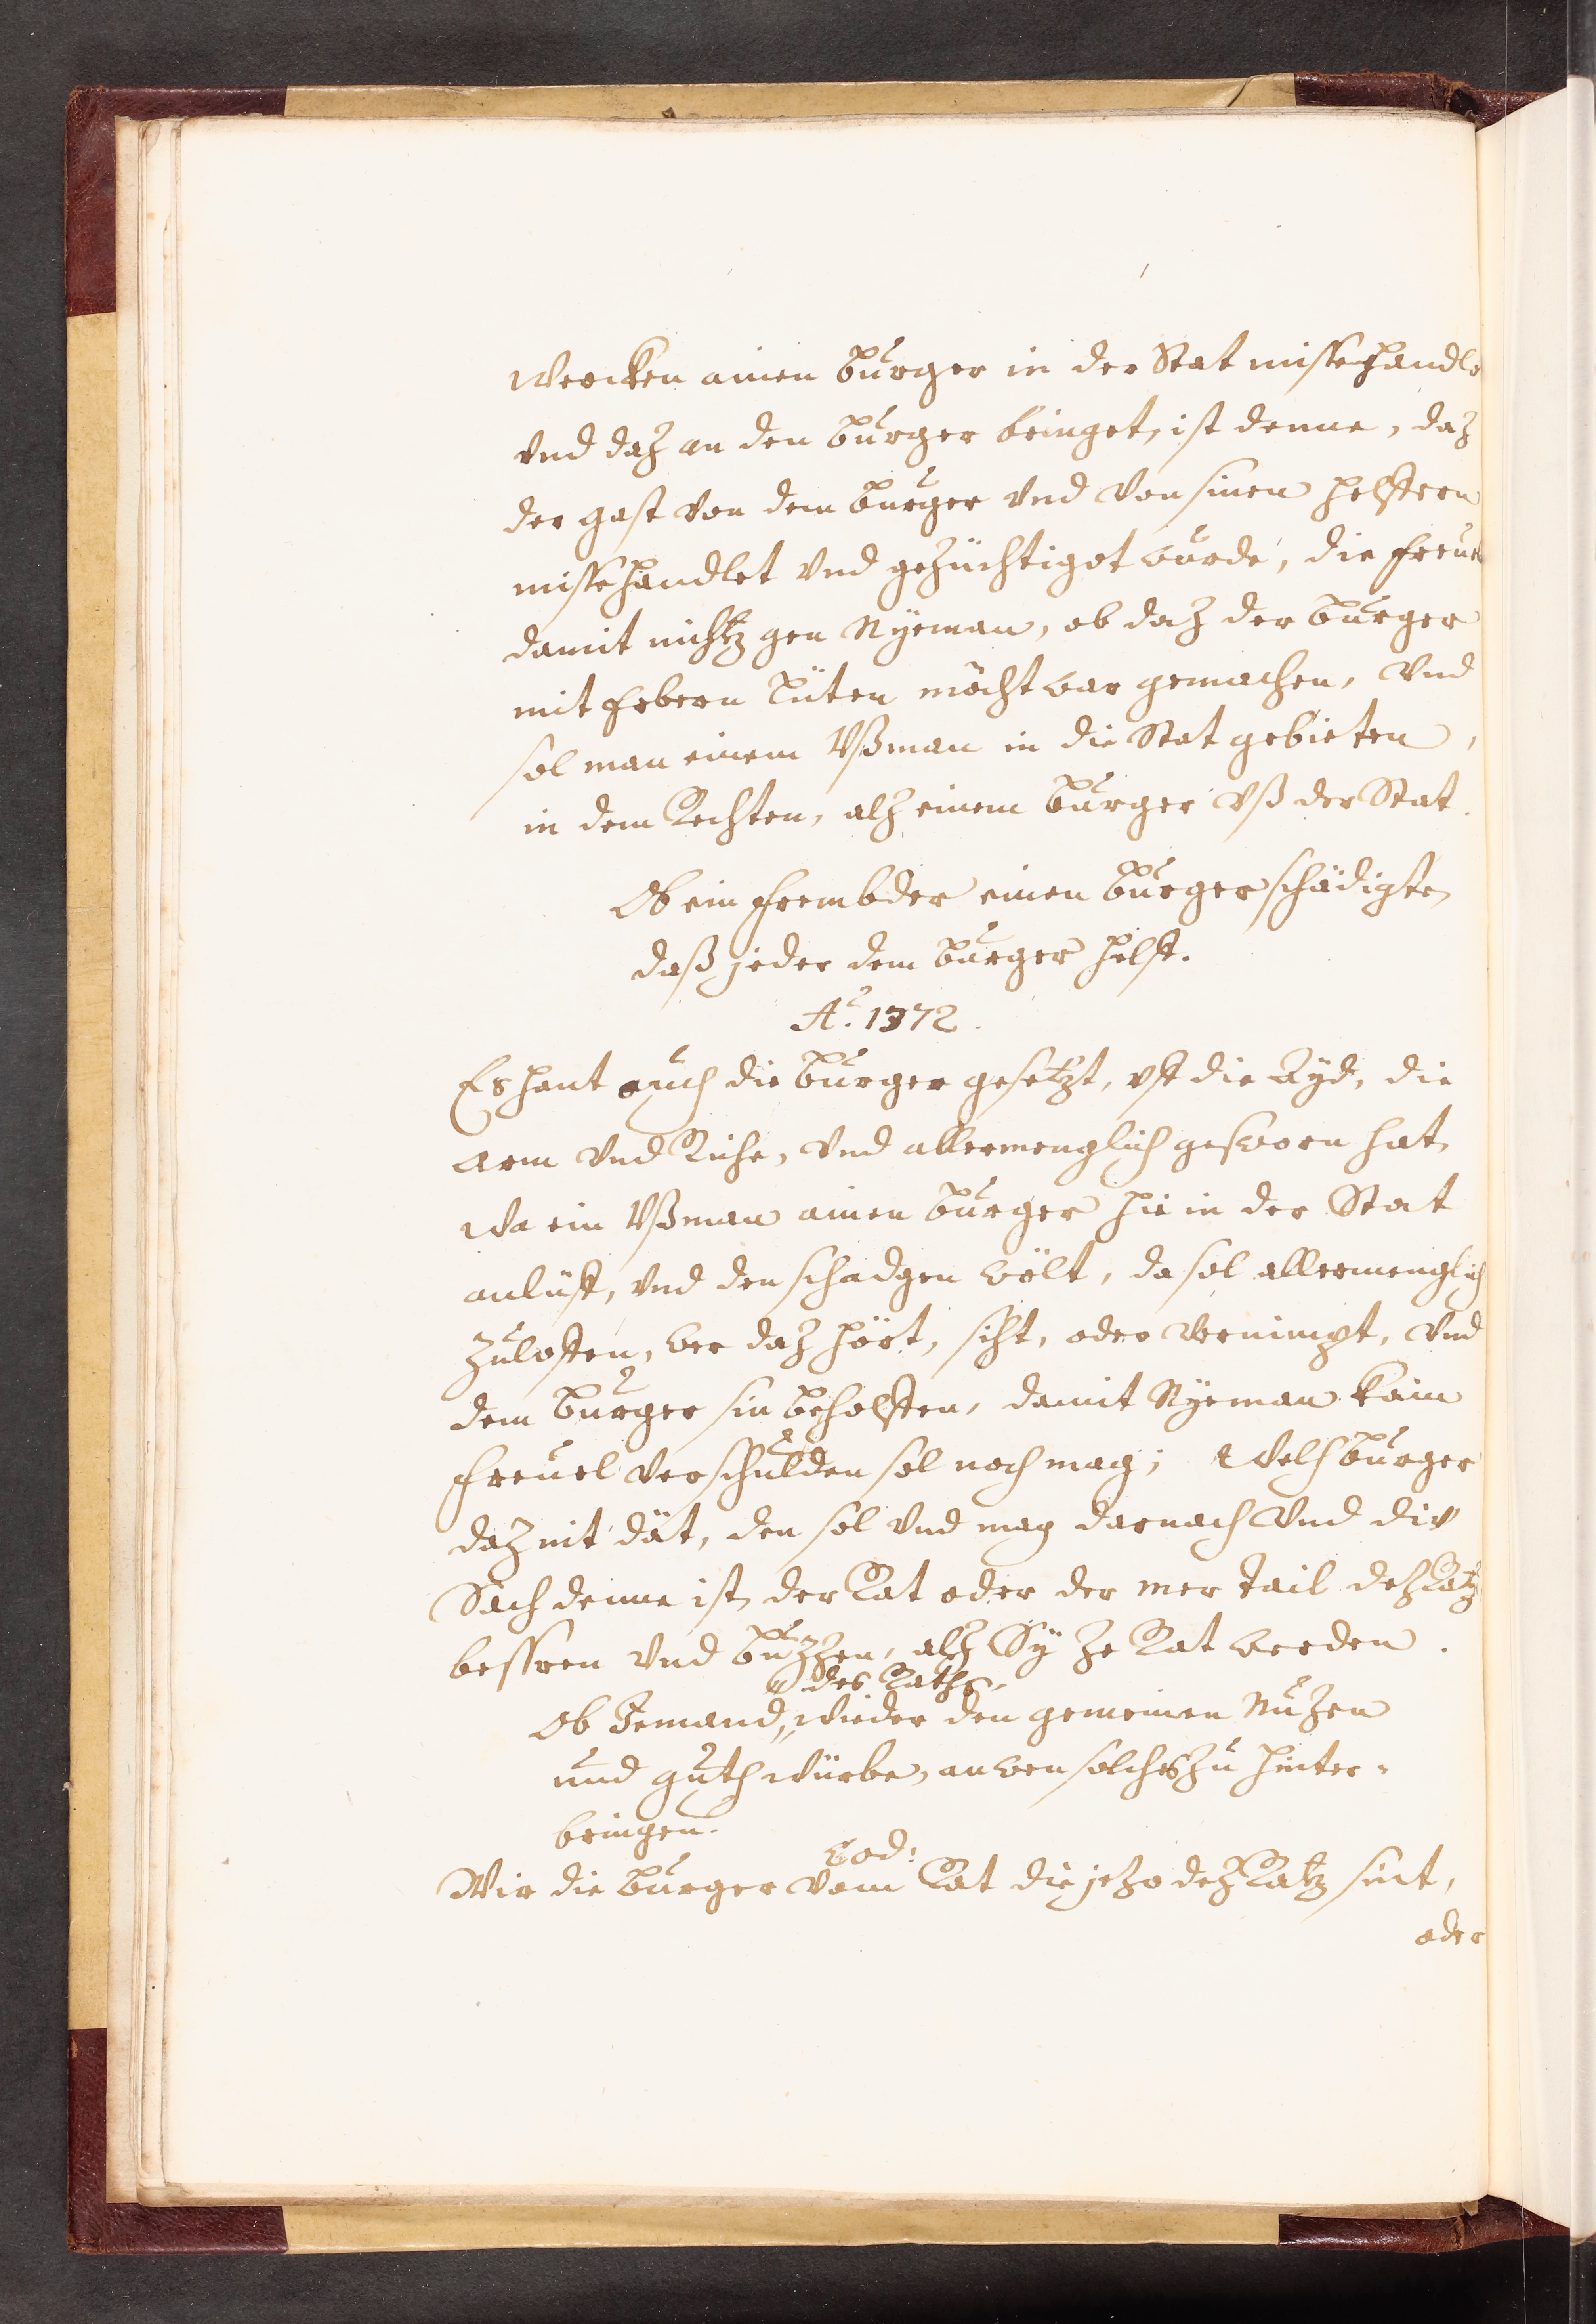 Wercken ainen burger in der Stat missehandle
vnd daz an den burger bringet, ist denne, daz
der gast von dem burger vnd von sinen helffern
missehandlet vnd gezüchtigot wurde, die freuel
damit nichtz gen Nyeman, ob daz der burger
mit Erbern Lüten möcht war gemachen, vnd
sol man einem Vßman in die Stat gebieten,
in dem Rechten, alz einem burger vß der Stat.
Ob ein frembder einen burger schädigte,
daß jeder dem burger helff.
Aº. 1372.
Es hant auch die burger gesetzt, vff die Ayd, die
arm vnd Riche, vnd allermenglich gesworn hat,
wa ein Vßman ainen burger hie in der Stat
anlüff, vnd den schadgen wölt, da sol allermenglich
Zuloffen, wer daz hört, siht, oder vernimpt, vnd
dem burger sin beholffen, damit Nyeman kain
freuel verschulden sol noch mag; Welh burger
daz nit dät, den sol vnd mag darnach vnd div
Sach denne ist, der Rat oder der mer tail dez Ratz
bessren vnd buzzen, alz Sy ze Rat werden.
des Raths,
Ob Jemand, wieder den gemeinen Nuzen
und guth würbe, an wen solches zu hinter-
bringen.
Eod:
Wir die burger vom Rat die jezo dez Ratz sint,
oder